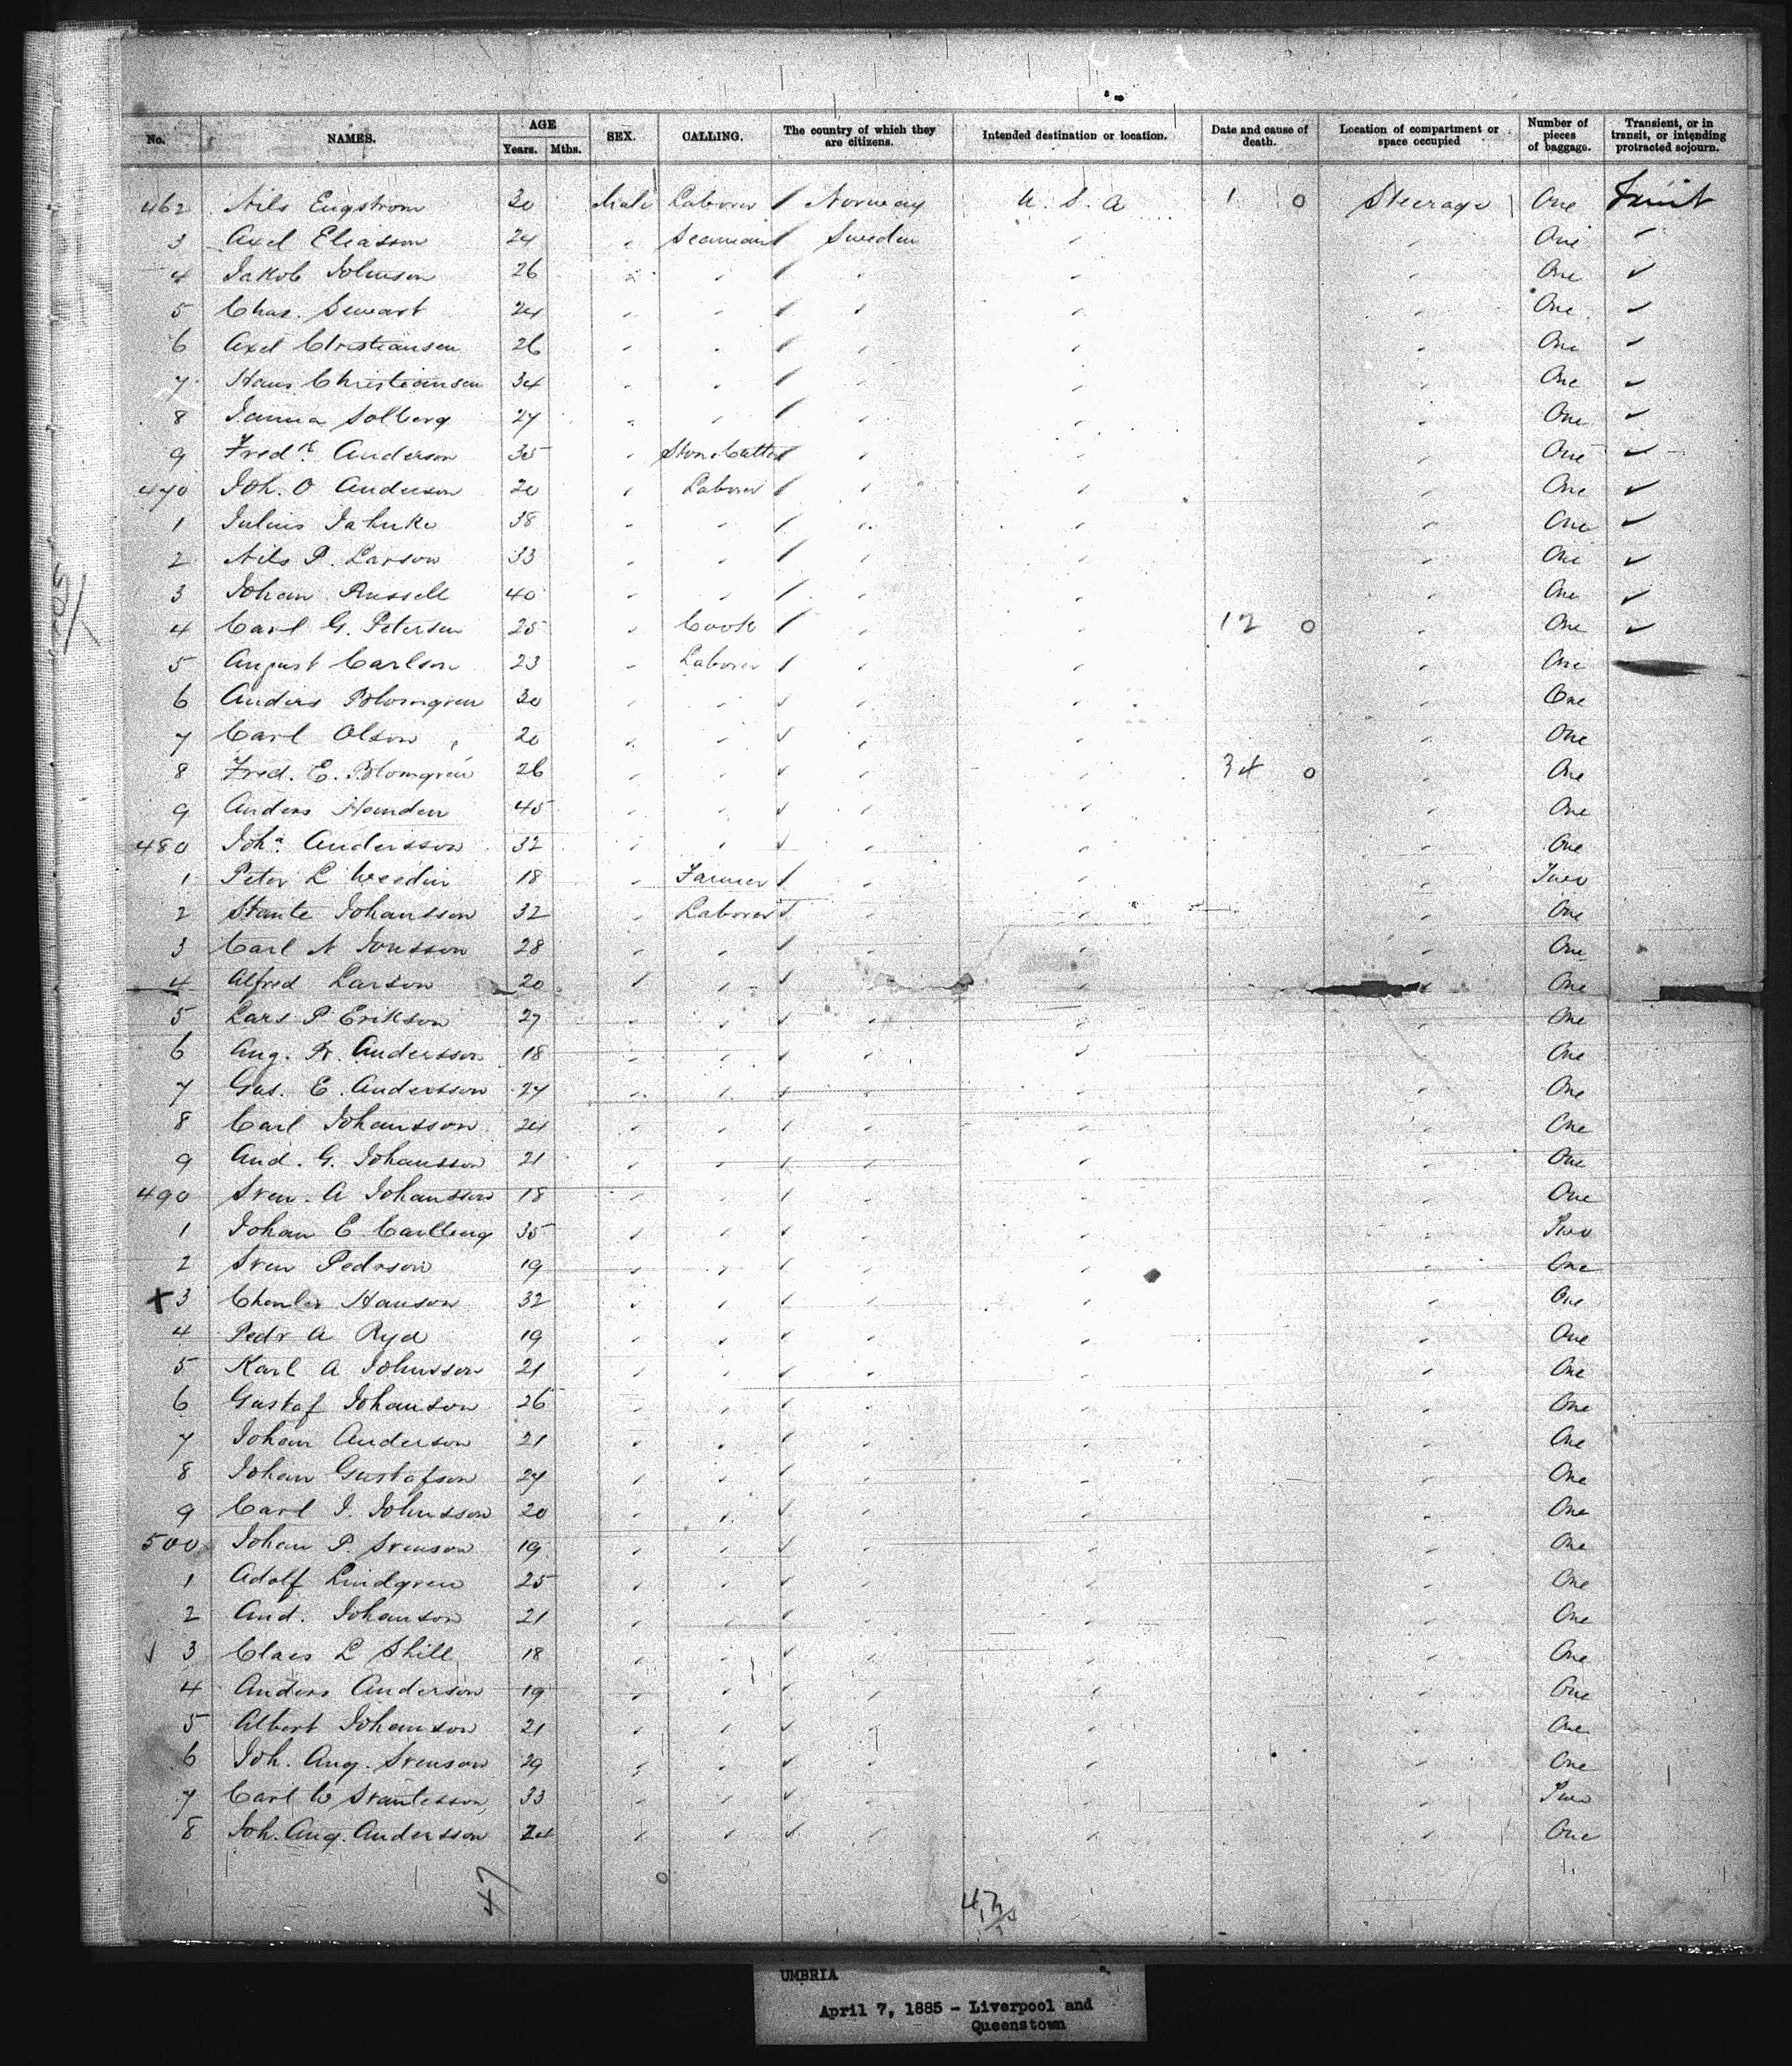 No. NAMES. AGE Years. Mths. SEX. CALLING. The country of which they are citizens. Intended destination or location. Date and cause of death. Location of compartment or space occupied Number of pieces of baggage. Transient, or in transit, or intending protracted sojourn.
462 Nils Engstrom 20 Male Laborer Norway U. S. A 1 0 Steerage One
3 Axel Eleasson 24 " Seaman Sweden " " One ✓
4 Jakob Johnson 26 " " " " " One ✓
5 Chas. Sewart 24 " " " " " One ✓
6 Axel Christiansen 26 " " " " " One ✓
7 Hans Christiansen 34 " " " " " One ✓
8 Solberg 27 " " " " " One ✓
9 Fredk. Anderson 35 " Stone Cutter " " " One ✓
470 Joh. O Anderson 20 " Laborer " " " One ✓
1 Julius Jahnke 38 " " " " " One ✓
2 Nils P. Larson 33 " " " " " One ✓
3 Johan Russell 40 " " " " " One ✓
4 Carl G. Petersen 25 " Cook " " 12 0 " One ✓
5 August Carlson 23 " Laborer " " " One
6 Anders Blomgren 30 " " " " " One
7 Carl Olson 20 " " " " " One
8 Fred. E. Blomgren 26 " " " " 34 0 " One
9 Anders 45 " " " " " One
480 Joha. Andersson 32 " " " " " One
1 Peter L Weedin 18 " Farmer " " " Two
2 Johansson 32 " Laborer " " " One
3 Carl N Jonsson 28 " " " " " One
4 Alfred Larson 20 " " " " " One
5 Lars P Erikson 27 " " " " " One
6 Aug. Fr. Andersson 18 " " " " " One
7 Gus. E. Andersson 24 " " " " " One
8 Carl Johansson 24 " " " " " One
9 And. G. Johansson 21 " " " " " One
490 Sven. A Johansson 18 " " " " " One
1 Johan E Carlberg 35 " " " " " Two
2 Sven Pedrson 19 " " " " " One
+3 Hanson 32 " " " " " One
4 Pedr A Ryd 19 " " " " " One
5 Karl A Johnsson 21 " " " " " One
6 Gustaf Johanson 26 " " " " " One
7 Johan Anderson 21 " " " " " One
8 Johan Gustafson 24 " " " " " One
9 Carl J. Johnsson 20 " " " " " One
500 Johan P. Svenson 19 " " " " " One
1 Adolf Lindgren 25 " " " " " One
2 And. Johanson 21 " " " " " One
✓ 3 Claes L Skill 18 " " " " " One
4 Anders Anderson 19 " " " " " One
5 Albert Johanson 21 " " " " " One
6 Joh. Aug. Svenson 29 " " " " " One
7 Carl W Svantesson 33 " " " " " Two
8 Joh. Aug. Andersson 24 " " " " " One
47
UMBRIA
April 7, 1885 - Liverpool and
Queenstown